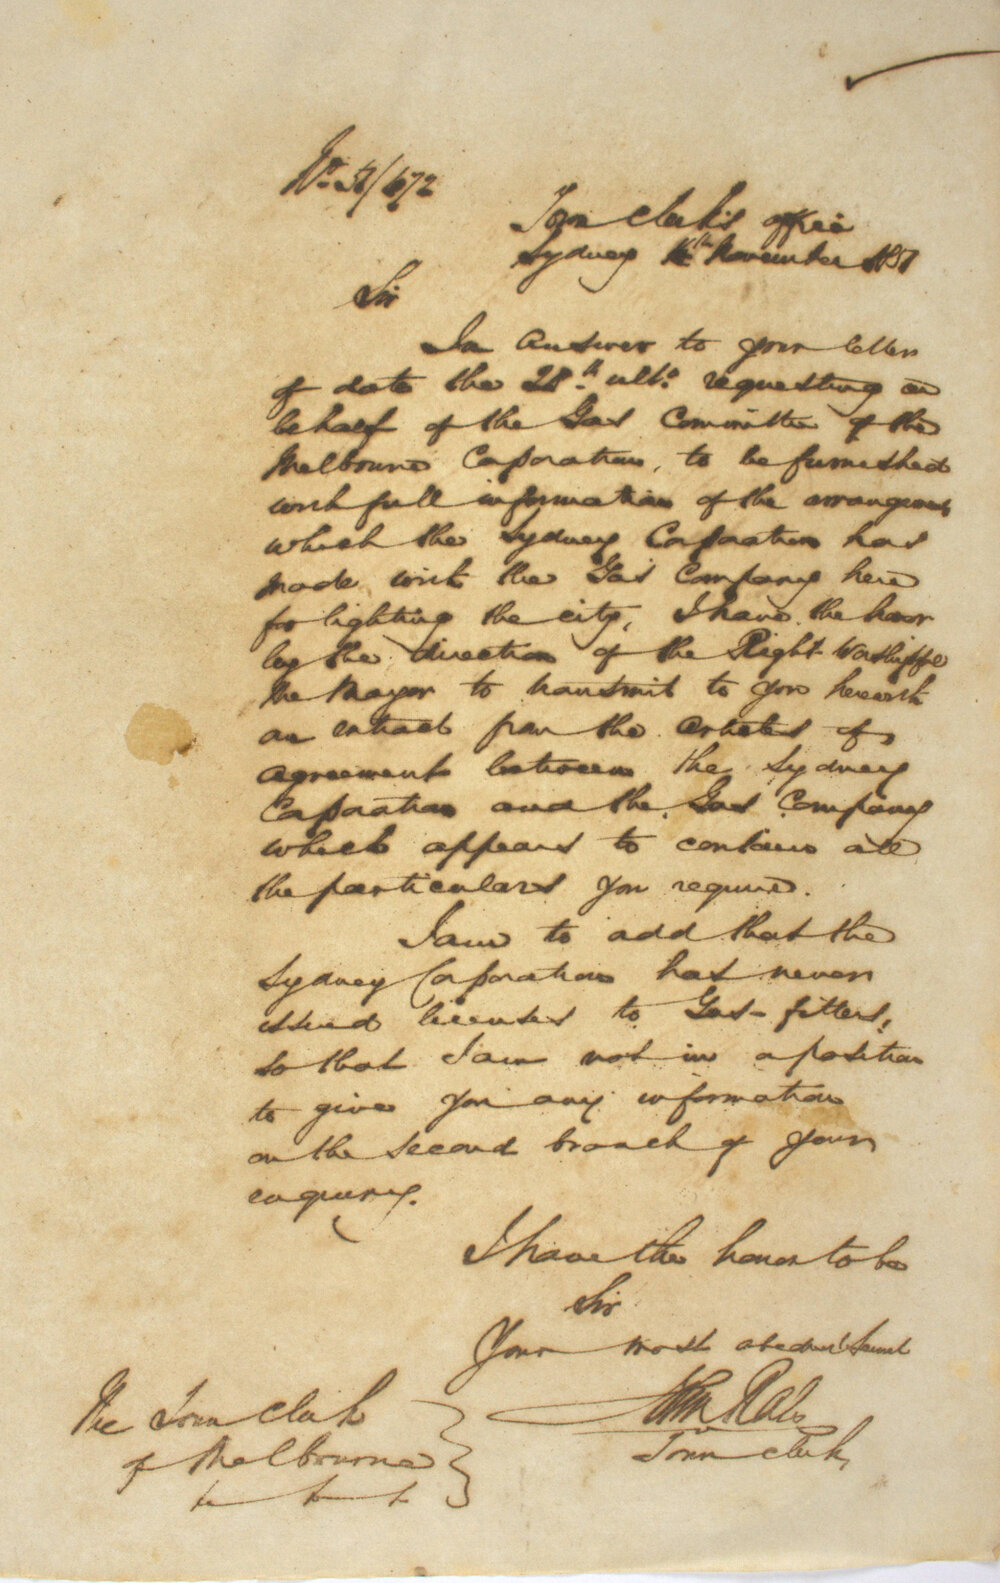 No. 57/672
Town Clerk's office
Sydney November 1857
Sir
In answer to your letter
of date the 28th ulto. requesting on
behalf of the Gas Committee of the
Melbourne Corporation, to be furnished
with full information of the arrangements
which the Sydney Corporation has
made with the Gas Company here
for lighting the city, I have the honor
by the direction of the Right Worshipful
the Mayor to transmit to you herewith
an extract from the articles of
agreement between the Sydney
Corporation and the Gas Company
which appears to contain all
the particulars you require.
I am to add that the
Sydney Corporation has never
issued licenses to Gas-fitters,
so that I am not in a position
to give you any information
on the second branch of your
enquiry.
I have the honor to be
Sir
Your most obedient Servant
John Rae
Town Clerk,
The Town Clerk
of Melbourne